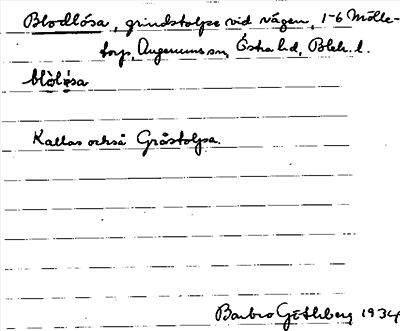 Blodlösa, grindstolpe vid vägen, 1-6 Mölle-
torp, Augerums sn, Östra hd, Blek. l.
blòlø̀sa
Kallas också Gråstolpa.
Barbro Göthberg 1934